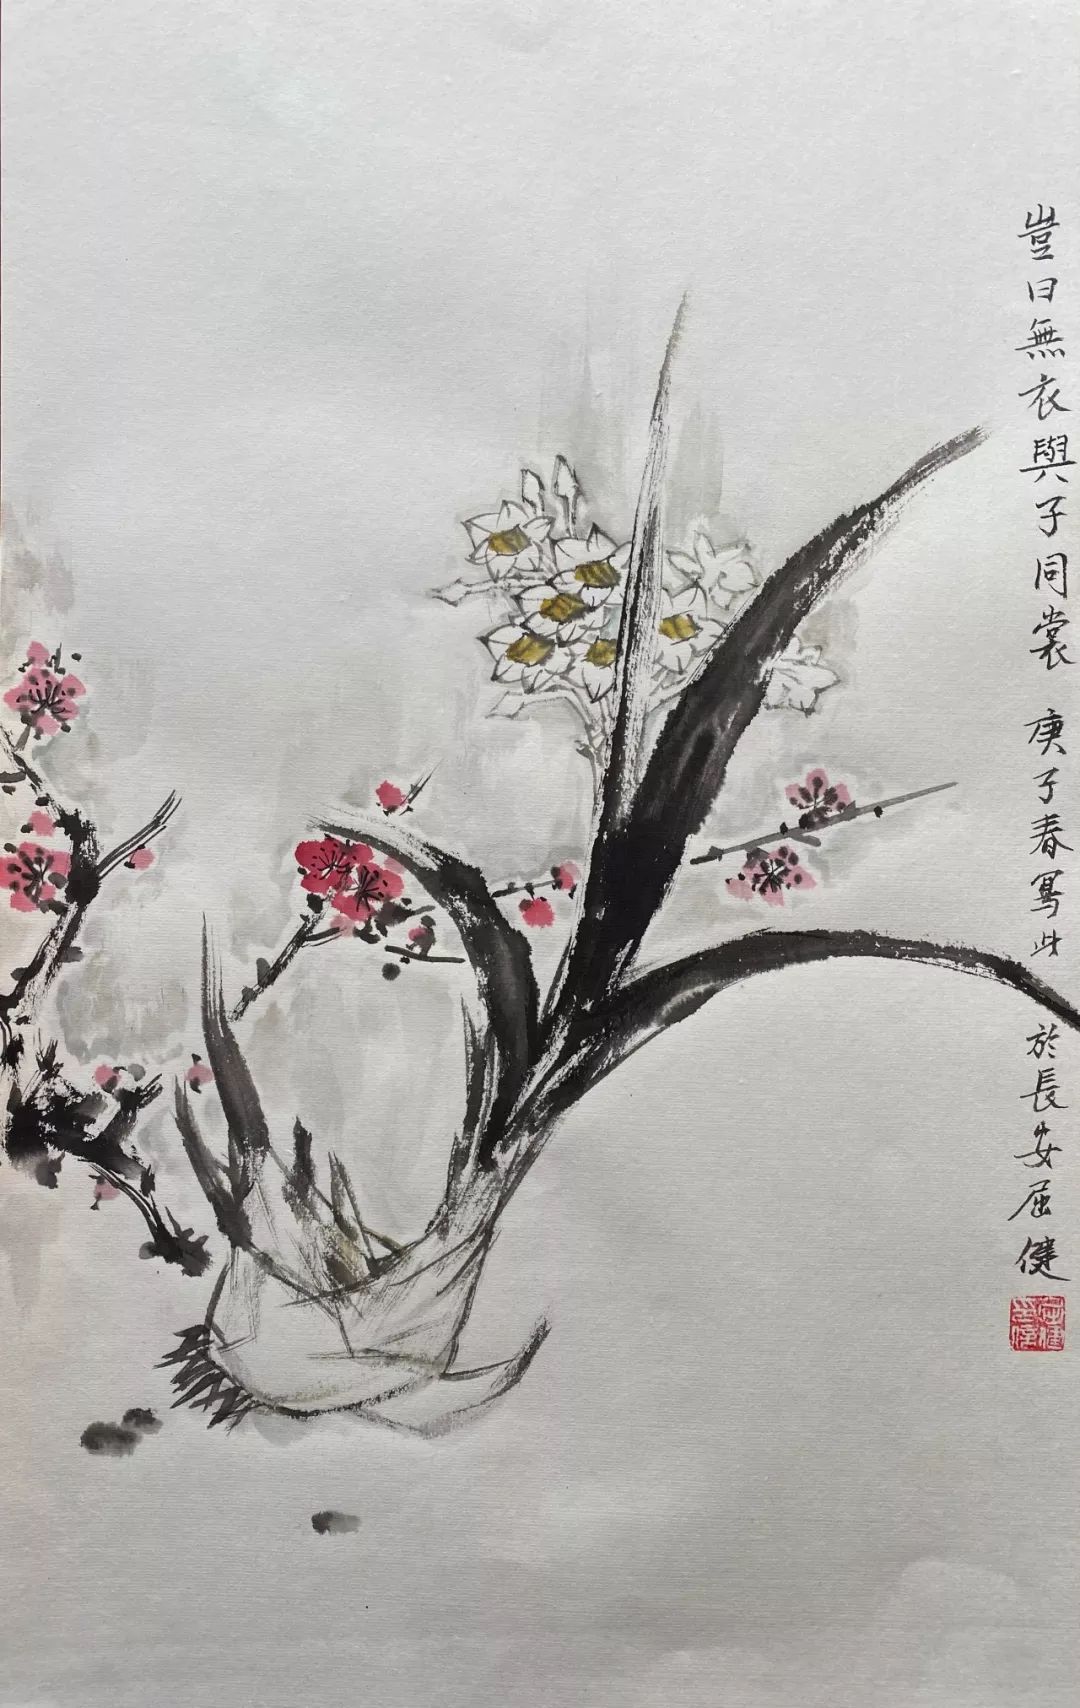 豈曰無衣與子同裳 庚子春寫此 於長安屈健